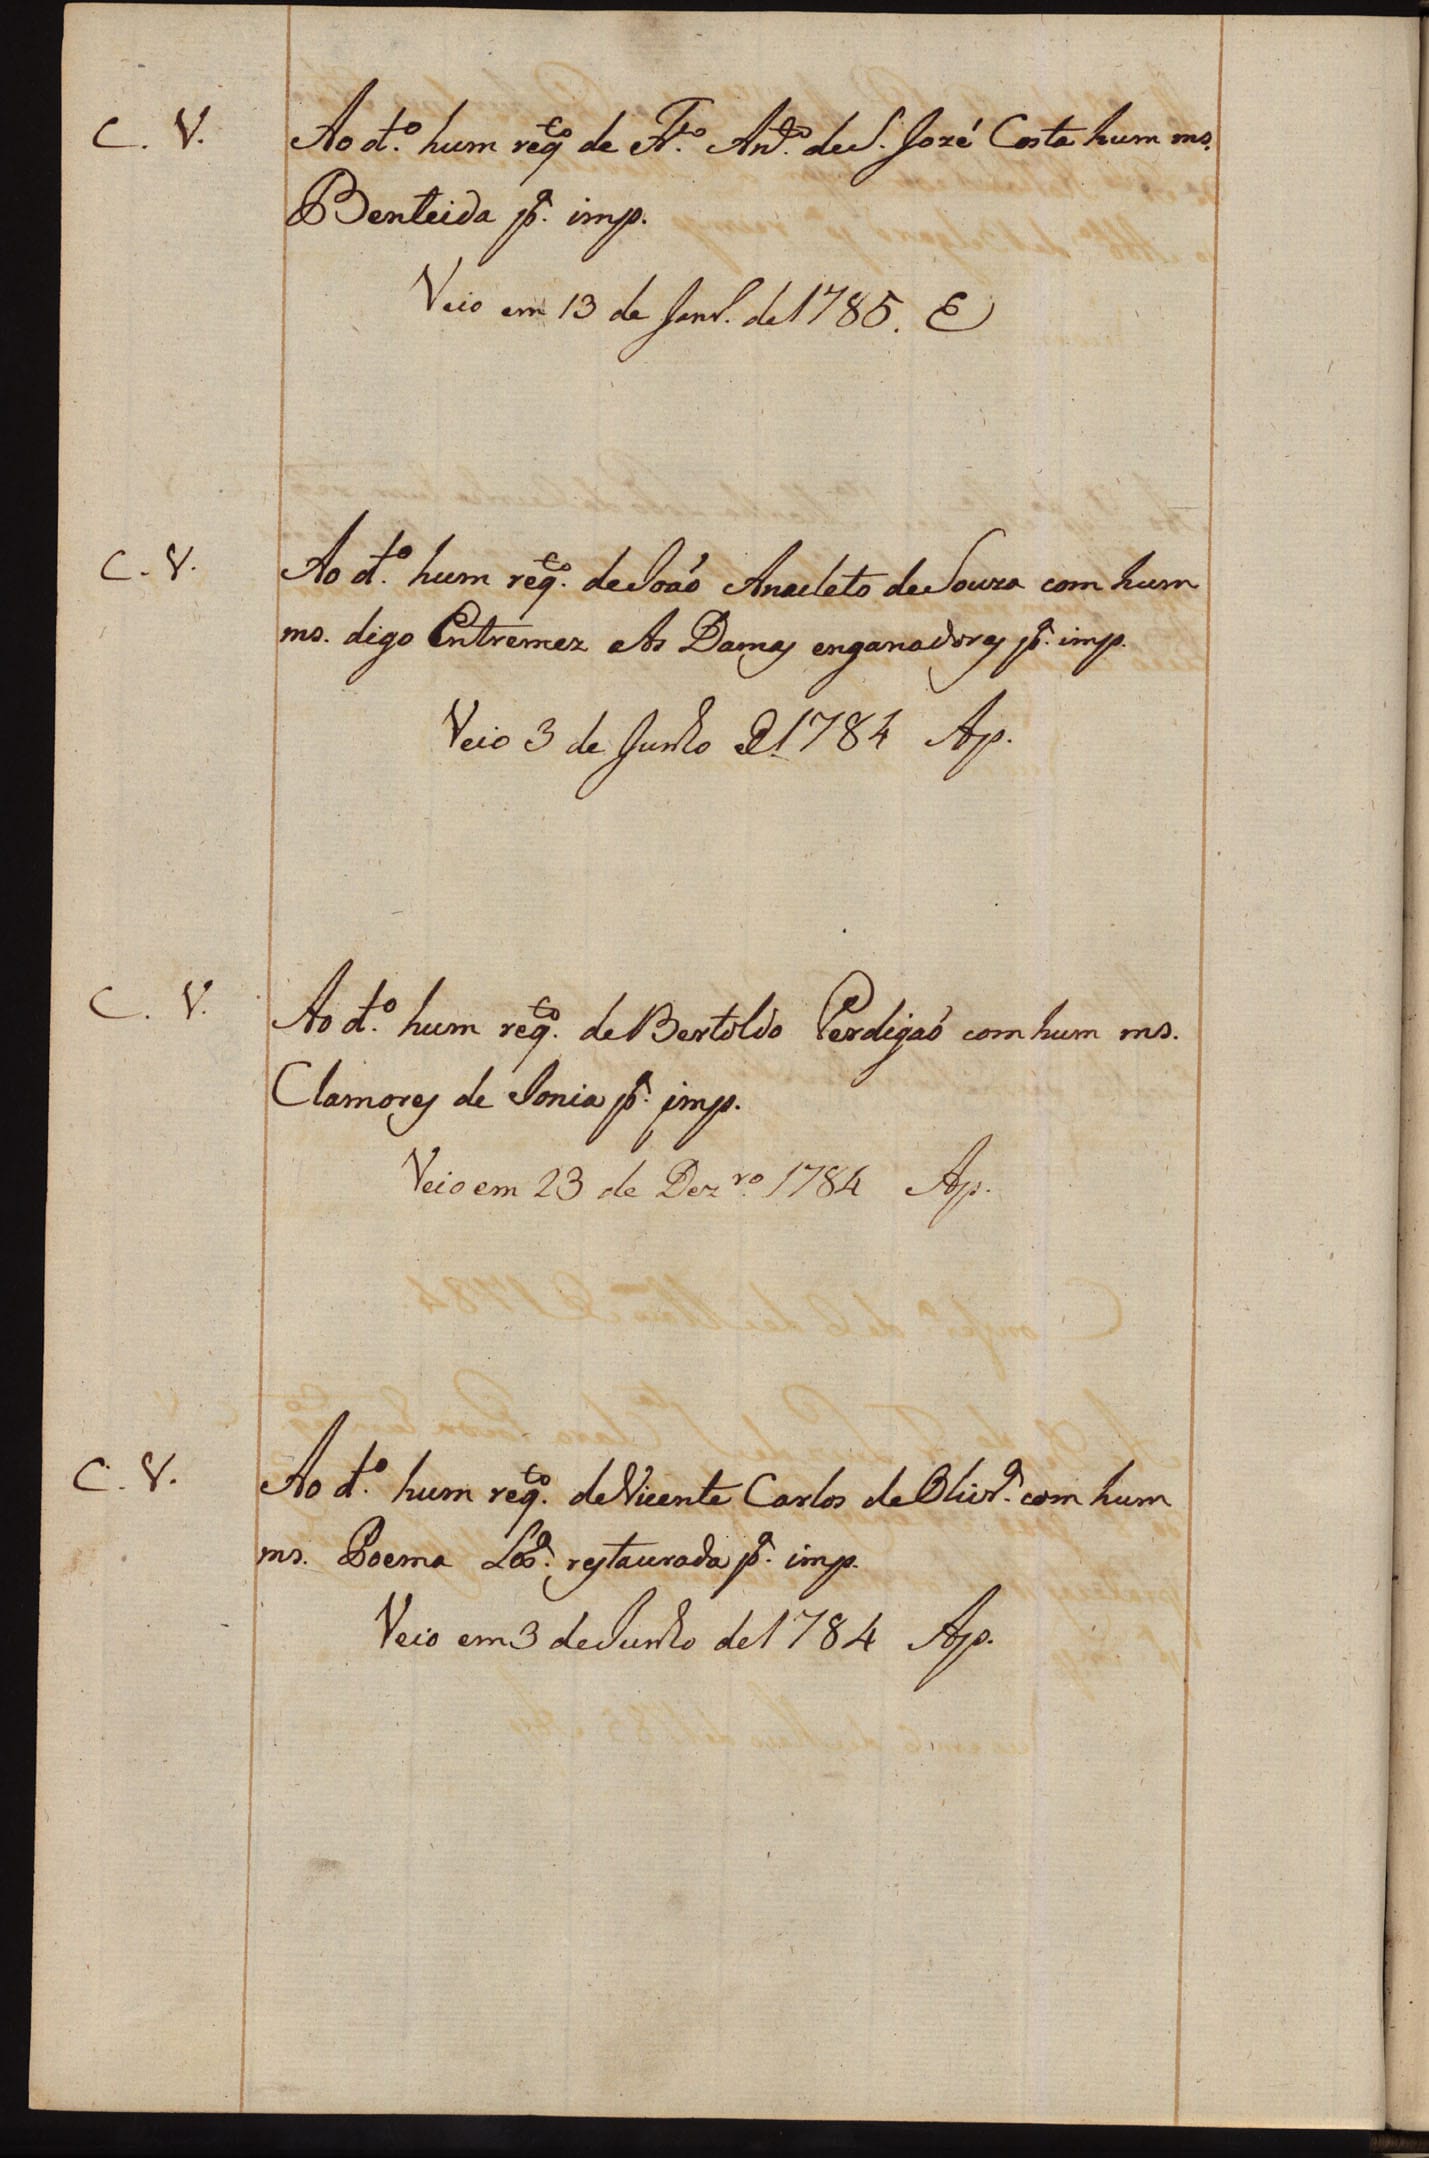 C. V. Ao d.º hum reqto de Fr.º Anto. de S. Jozé Costa hum ms.
Benteida pª. imp.
Veio em 13 de Janr. de 1785. E
C. V. Ao d.º hum reqto. de Joaõ Anacleto de Souza com hum
ms. digo Entremez As Damas enganadoras pª. imp.
Veio 3 de Junho D 1784 Ap.
C. V. Ao d.º hum reqto. de Bertoldo Perdigaõ com hum ms.
Clamores de Sonia pª. imp.
Veio em 23 de Dezro. 1784 Ap.
C. V. Ao d.º hum reqto. de Vicente Carlos de Olivrª. com hum
ms. Poema Lxª. restaurada pª. imp.
Veio em 3 de Junho de 1784 Ap.